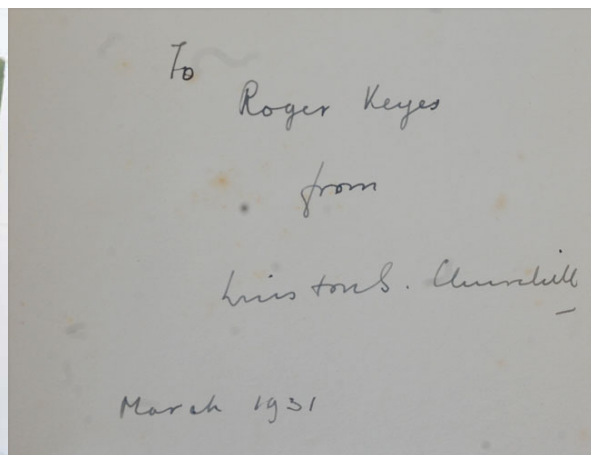 To
Roger Keyes
from
Winston S. Churchill
March 1931